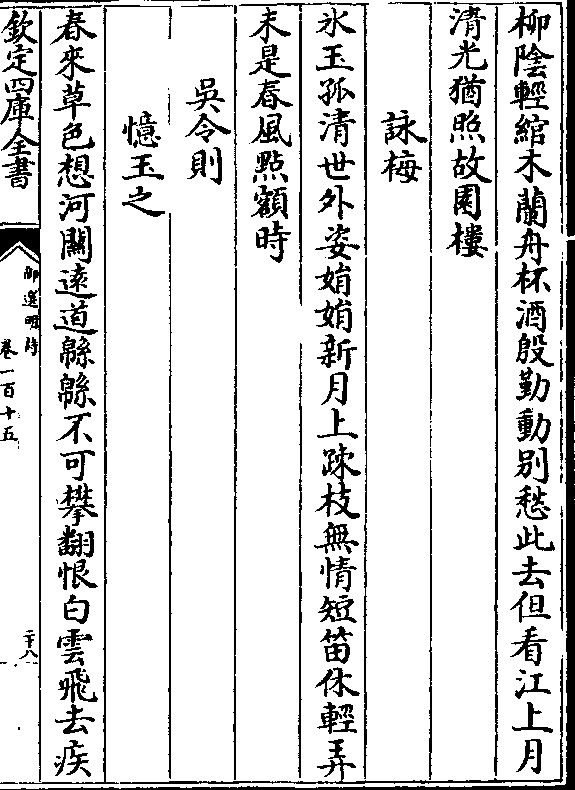 柳陰輕綰木蘭舟杯酒殷勤動別愁此去但看江上月
清光猶照故園樓
詠梅
氷玉孤清世外姿娟娟新月上疎枝無情短笛休輕弄
未是春風點額時
吳令則
憶玉之
春來草色想河關遠道緜緜不可攀翻恨白雲飛去疾
欽定四庫全書
御選明詩
卷一百十五
二十八